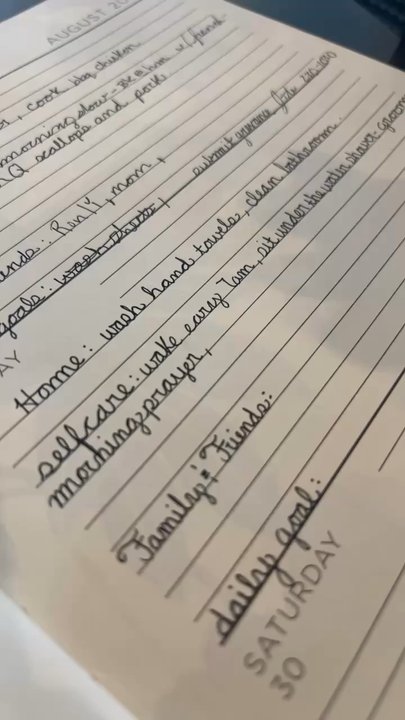 AUGUST 20
, cook bbq chicken
morning slow - be @ hm w/ friend
Q scallops and pork.
ends: Rin14, mom,
goals: wash sheets, submit grievance
AY
Home: wash hand towels, clean bathroom.
selfcare: wake early 7am, sit under the water, shave-groom
morning prayer,
Family & Friends:
daily goal:
SATURDAY
30